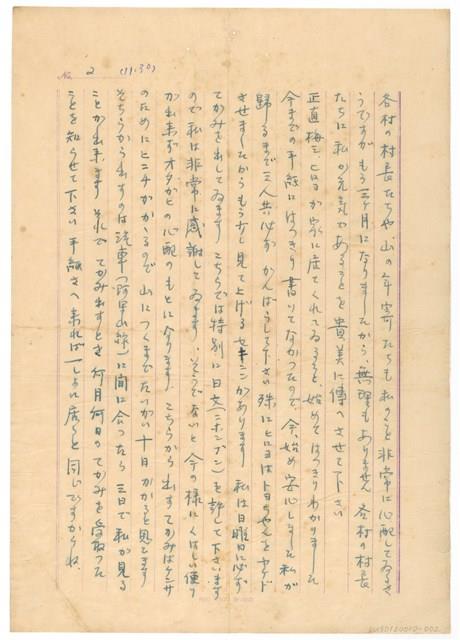 No. 2 (11.30)
各村の村長たちや、山の年寄たちも私のことを非常に心配してゐるさ
うですが もう三ヶ月になりましたから、無理もありません 各村の村長
たちに私が元気であることを貴美に傳へさせて下さい
正直 梅三、ヒロヨが家に庄てくれてゐると、始めてはっきりわかりました
今までの手紙にはっきり書いてなかったので、今、始め安心しました 私が
歸るまで三人共必ずがんばらして下さい 殊にヒロヨはトヨちゃんをヤケド
させましたからもう少し見て上げるセキニンがあります 私は日曜日に必ず
てがみを出してゐます こちらでは特別に日文(ニホンブン)を許して下さいます
ので 私は非常に感謝してゐます、そうでないと今の様にくはしい便り
が出来ずオタガヒの心配のもとになります こちらから出すてがみはケンサ
のためにヒニチがかゝるので 山につくまでたいがい十日かかると思ひます
そちらから出すのは汽車(阿里山線)に間に合ったら三日で私が見る
ことが出来ます それで てがみ出すとき何月何日のてがみを受取った
ことを知らせて下さい 手紙さへ来れば一しょに居ると同じですからね.
LW3D120012-002